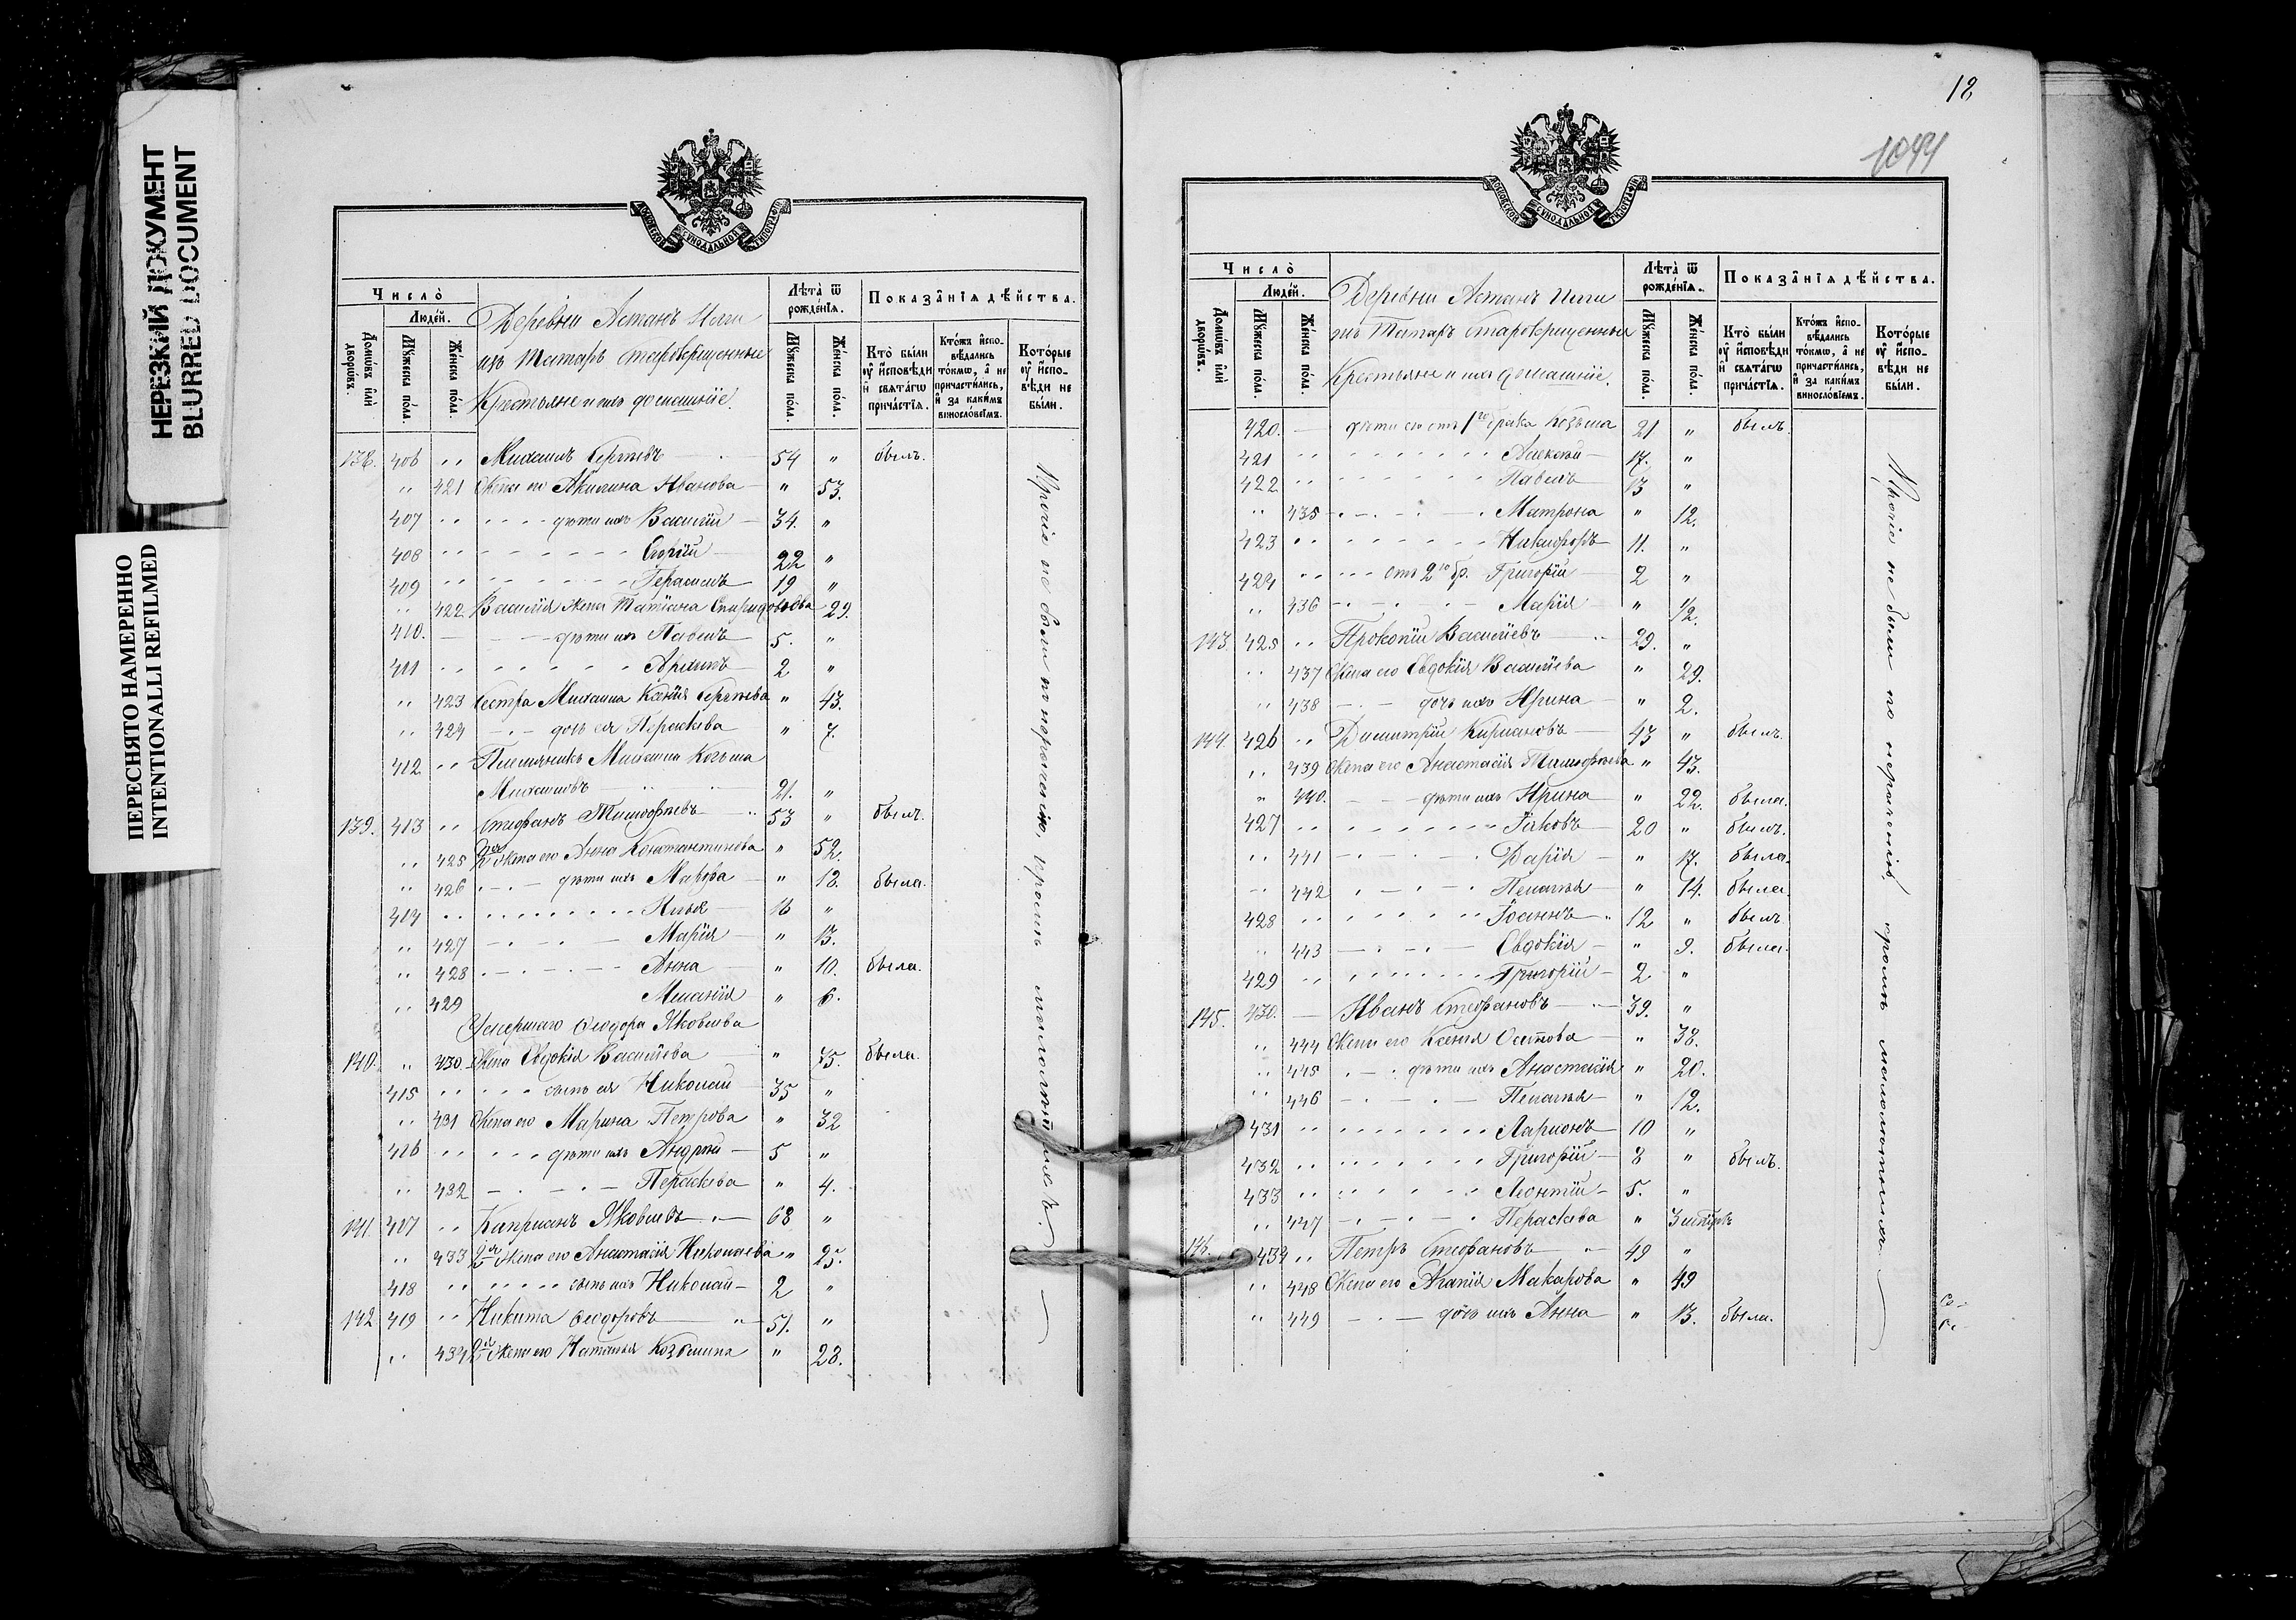 НЕРЕЗКИЙ ДОКУМЕНТ
BLURRED DOCUMENT
ПЕРЕСНЯТО НАМЕРЕННО
INTENTIONALLI REFILMED
МОСКОВСКОЙ СѴНОДАЛЬНОЙ ТИПОГРАФІИ
Число̀
Людей.
Домѡвъ или дворѡвъ.
Мꙋжеска пола.
Женска пола.
Деревни Астанъ Илги
изъ Татаръ старокрещенные
Крестьяне и ихъ домашніе.
Лѣта ѿ рожденїѧ.
Мꙋжеска пола.
Женска пола.
Показанїѧ дѣйства.
Кто были оу исповѣди и свѧтагѡ причастїѧ.
Ктожъ исповѣдались токмѡ, а не причастились, и за какимъ винословїемъ.
Которые оу исповѣди не были.
138. 406 " Михаилъ Сергѣевъ 54 " былъ.
" 421 Жена его Акилина Иванова " 53.
407 " дѣти ихъ Василій 34. "
408 " Георгій 22 "
409 " Герасимъ 19 "
" 422 Василія жена Татіана Спиридонова 29.
410. — дѣти ихъ Павелъ 5. "
411 " 2 "
" 423 Сестра Михаила Ксенія Сергѣева " 43.
" 424 дочь ея Параскева " 7.
412 " Племянникъ Михаила Козьма
Михаиловъ 21. "
139. 413 " Стефанъ Тимофѣевъ 53 " былъ.
" 425 2я жена его Анна Константинова " 52.
" 426 дѣти ихъ Марфа " 18. была.
414 " Илья 16 "
" 427 Марія " 13.
" 428 Анна " 10. была.
" 429 Меланія " 6.
Умершаго Ѳеодора Яковлева
140. " 430 Жена Евдокія Васильева " 75. была.
415 " сынъ ея Николай 35 "
" 431 Жена его Марина Петрова " 32
416 " дѣти ихъ Андрей 5 "
" 432 Параскева " 4.
141. 417 " Кипріанъ Яковлевъ 68 "
" 433 2я жена его Анастасія Николаева " 25.
418 " сынъ ихъ Николай 2 "
142 419 " Никита Ѳеодоровъ 51. "
" 434 2я жена его Наталья Козьмина " 28.
Прочіе не были по нерѣченію, кромѣ малолѣтнихъ.
18
1044
МОСКОВСКОЙ СѴНОДАЛЬНОЙ ТИПОГРАФІИ
Число̀
Людей.
Домѡвъ или дворѡвъ.
Мꙋжеска пола.
Женска пола.
Деревни Астанъ Илги
изъ Татаръ старокрещенные
Крестьяне и ихъ домашніе.
Лѣта ѿ рожденїѧ.
Мꙋжеска пола.
Женска пола.
Показанїѧ дѣйства.
Кто были оу исповѣди и свѧтагѡ причастїѧ.
Ктожъ исповѣдались токмѡ, а не причастились, и за какимъ винословїемъ.
Которые оу исповѣди не были.
420. — дѣти его отъ 1го брака Козьма 21 " былъ.
421 " Алексѣй 17. "
422 " Павелъ 13 "
" 435 Матрона " 12.
423 " Никифоръ 11. "
424 " отъ 2го бр. Григорій 2 "
" 436 Марія " 1/2.
143. 425 " Прокопій Васильевъ 29. "
" 437 Жена его Евдокія Васильева " 29.
" 438 дочь ихъ Ирина " 2.
144. 426 " Димитрій Кипріановъ 43 " былъ.
" 439 Жена его Анастасія Тимофѣева " 43.
" 440. дѣти ихъ Ирина " 22. была.
427 " Іаковъ 20 " былъ.
" 441 Дарія " 17. была.
" 442 Пелагѣя " 14. была.
428 " Іоаннъ 12 " былъ
" 443 Евдокія " 9. была.
429 " Григорій 2 "
145. 430. — Иванъ Стефановъ 39. "
" 444 Жена его Ксенія Осипова " 38.
" 445 дѣти ихъ Анастасія " 20.
" 446 Пелагѣя " 12.
431 " Ларіонъ 10 "
432 " Григорій 8 " былъ.
433 " Леонтій 5. "
" 447 Параскева "
146. 434 " Петръ Стефановъ 49 "
" 448 Жена его Агапія Макарова " 49
" 449 дочь ихъ Анна " 13. была.
Прочіе не были по нерѣченію, кромѣ малолѣтнихъ.